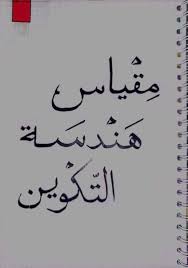 مِقْياس
هَنْدسَة
التّكوْين